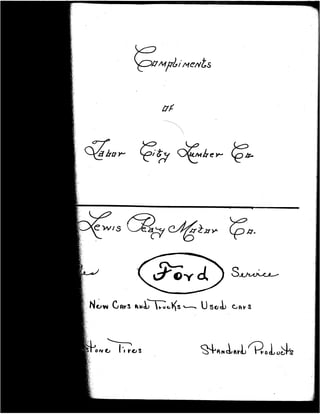 Compliments
of
Tabor City Lumber Co.
Lewis Motor Co.
les Ford Service
New Cars and Trucks — Used cars
stone Tires Standard Products